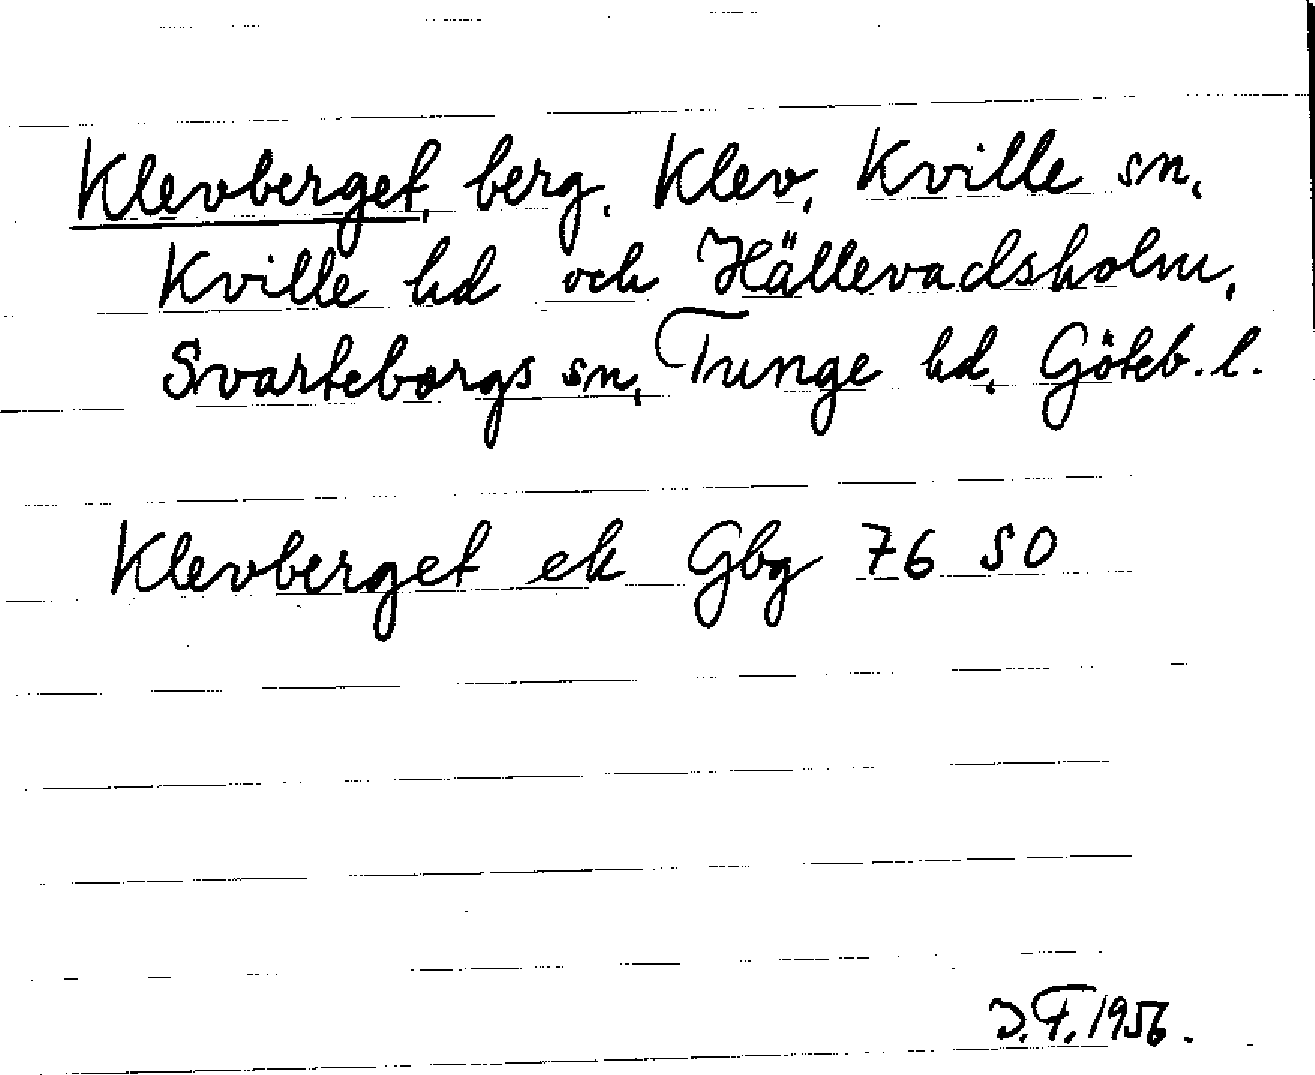 Klevberget, berg, Klev, Kville sn,
Kville hd och Hällevadsholm,
Svarteborgs sn, Tunge hd, Göteb. l.
Klevberget ek Gbg 76 SO
J.F. 1956.